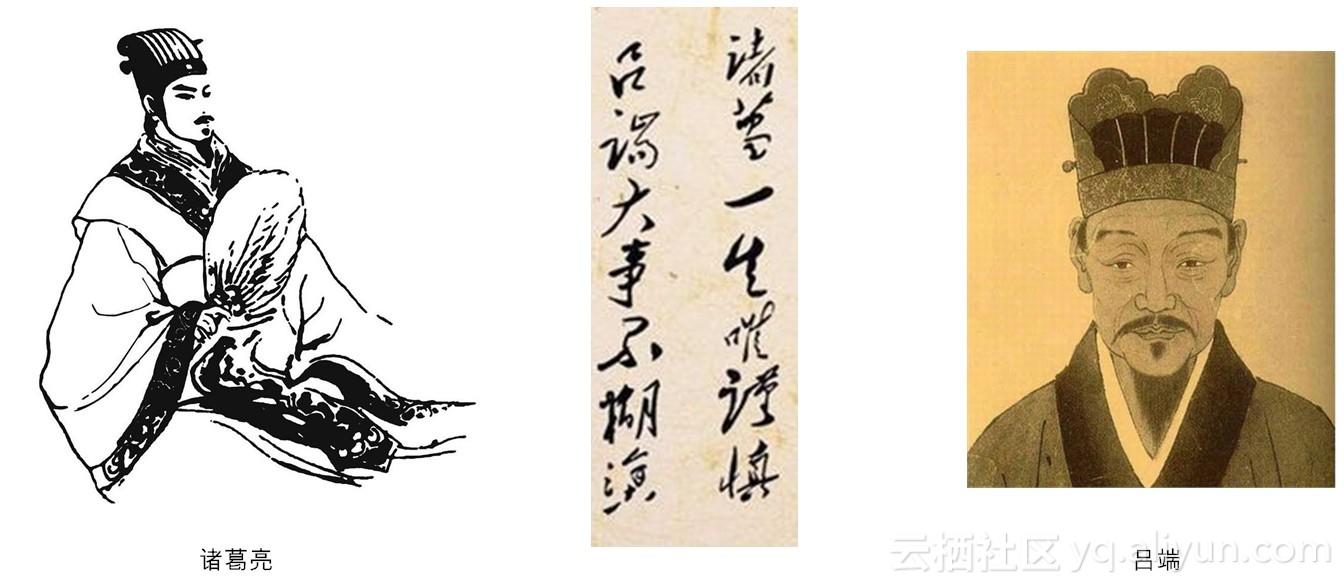 诸葛一生唯谨慎
吕端大事不糊涂
诸葛亮
吕端
云栖社区 yq.aliyun.com